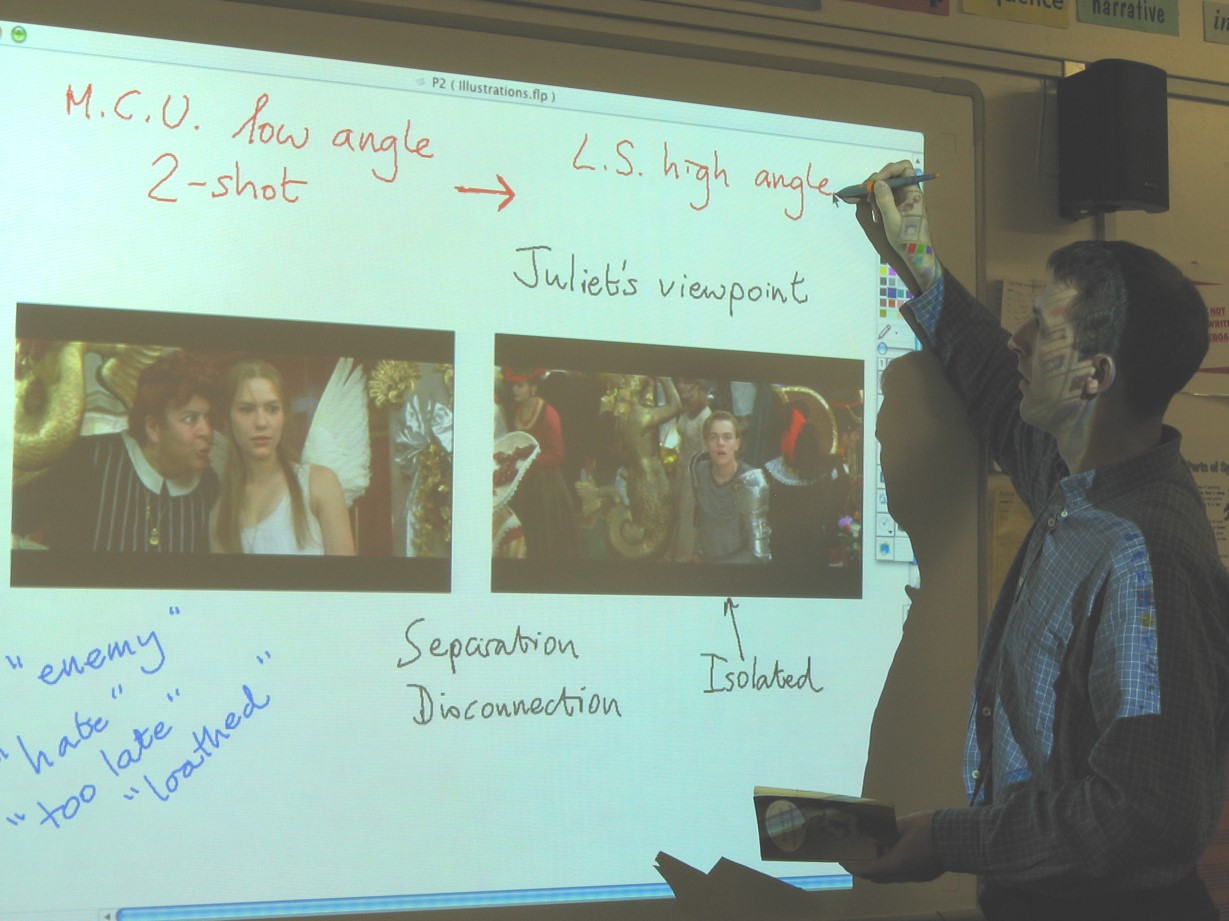 narrative
P2 ( Illustrations.flp )
M.C.U. low angle
2-shot
→
L.S. high angle
Juliet's viewpoint
"enemy"
"hate"
"too late"
"loathed"
Separation
Disconnection
Isolated
NOT